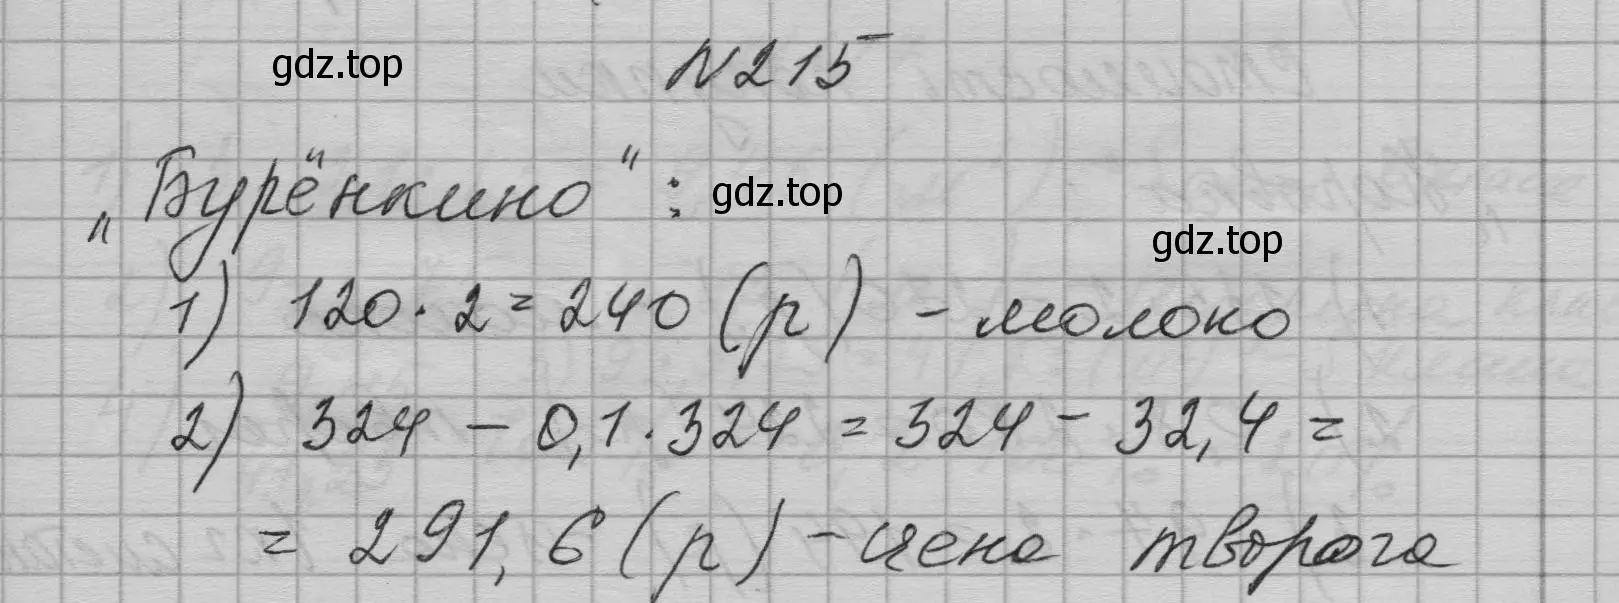 gdz.top
N215
„Бурёнкино“: gdz.top
gdz.top
1) 120·2=240 (р) - молоко
2) 324 - 0,1·324 = 324 - 32,4 =
= 291,6 (р) - цена творога